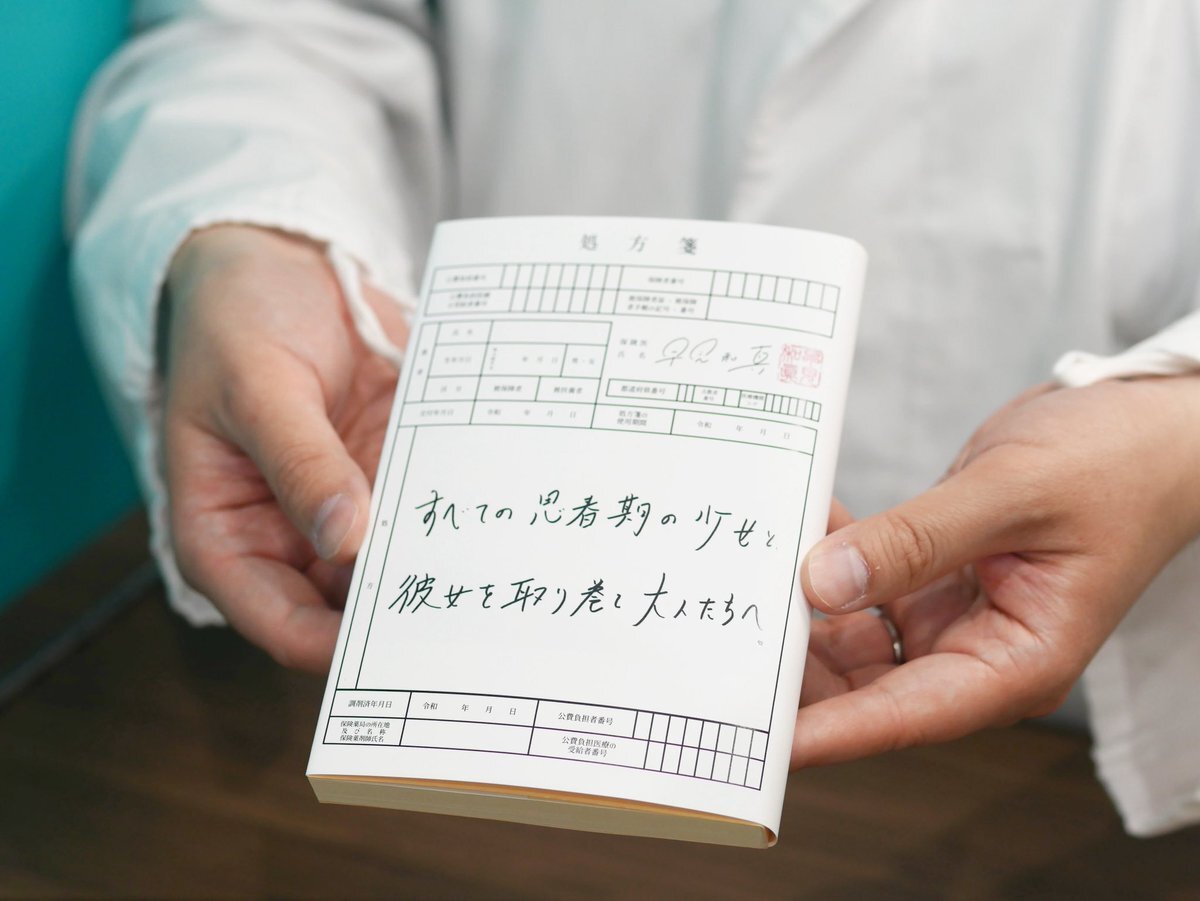 処方箋
公費負担者番号
保険者番号
公費負担医療の受給者番号
被保険者証・被保険
者手帳の記号・番号
患者
氏名
生年月日
年 月 日
男・女
区分
被保険者
被扶養者
保険医
氏名
都道府県番号
点数表
番号
医療機関
コード
交付年月日
令和 年 月 日
処方箋の
使用期間
令和 年 月 日
処方
すべての思春期の少女と、
彼女を取り巻く大人たちへ。
調剤済年月日
令和 年 月 日
公費負担者番号
保険薬局の所在地
及び名称
保険薬剤師氏名
公費負担医療の
受給者番号